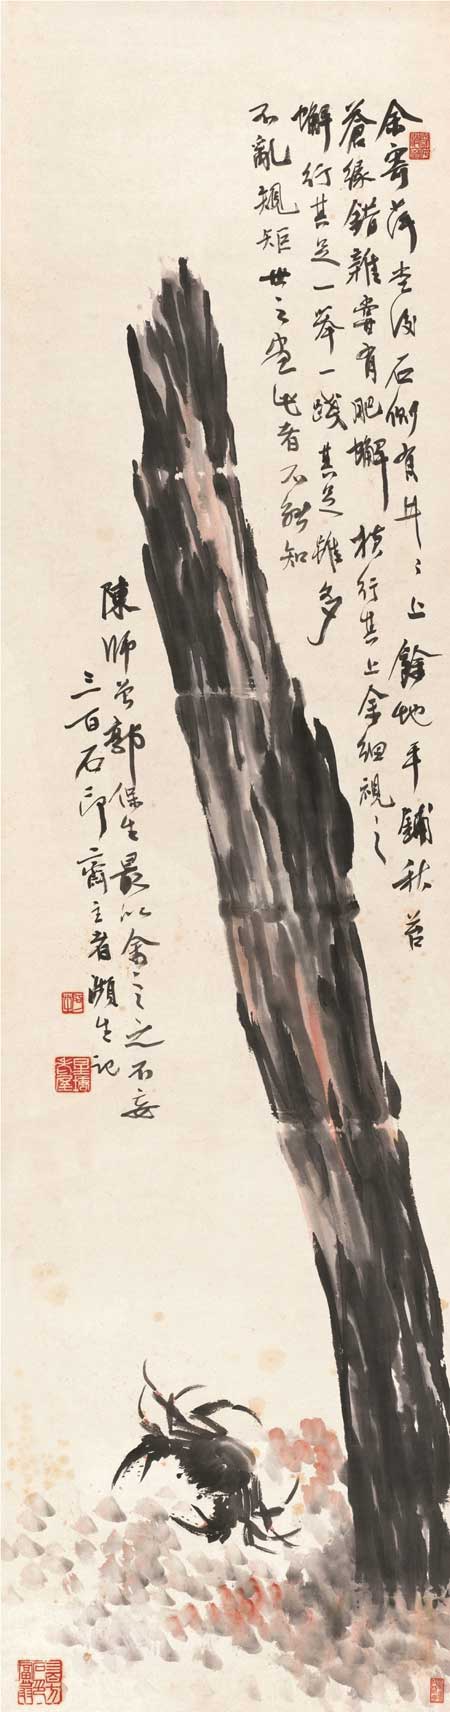 余寄萍堂後石側有井〻上餘地平鋪秋苔
蒼綠錯雜嘗有肥蠏橫行其上余細視之
蠏行其足一舉一踐其足雖多
不亂規矩世之畫此者不能知
陳師曾郭保生最以余之言不妄
三百石印齋主者瀕生記